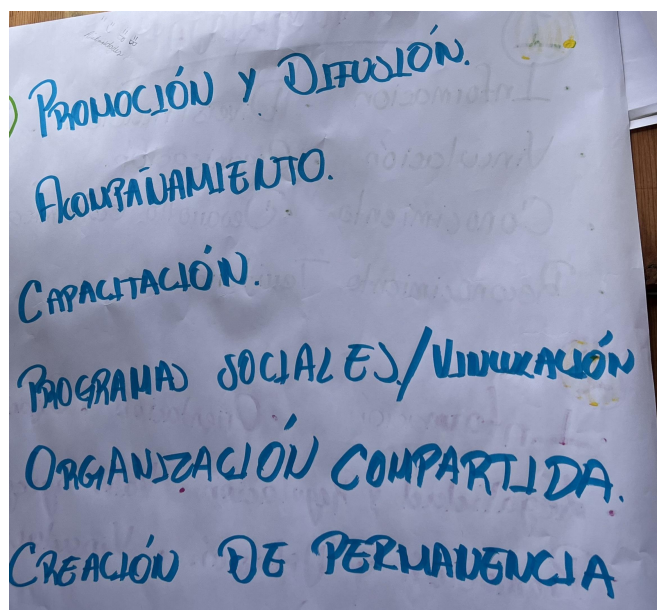 PROMOCIÓN Y DIFUSIÓN.
ACOMPAÑAMIENTO.
CAPACITACIÓN.
PROGRAMAS SOCIALES/VINCULACIÓN
ORGANIZACIÓN COMPARTIDA.
CREACIÓN DE PERMANENCIA